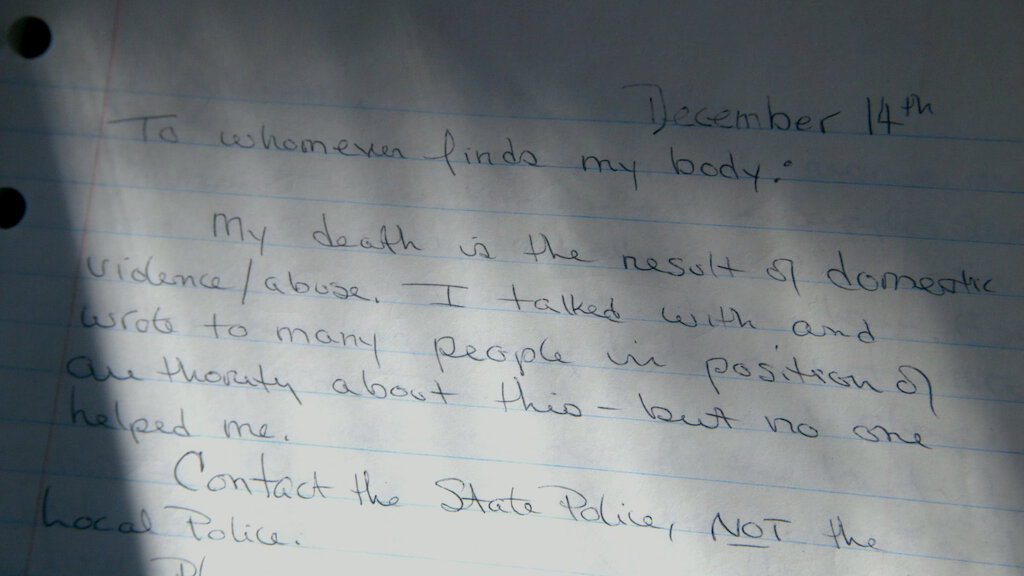 December 14th
To whomever finds my body:
My death is the result of domestic
vidence/abuse. I talked with and
wrote to many people in position of
authority about this - but no one
helped me.
Contact the State Police, NOT the
Local Police.